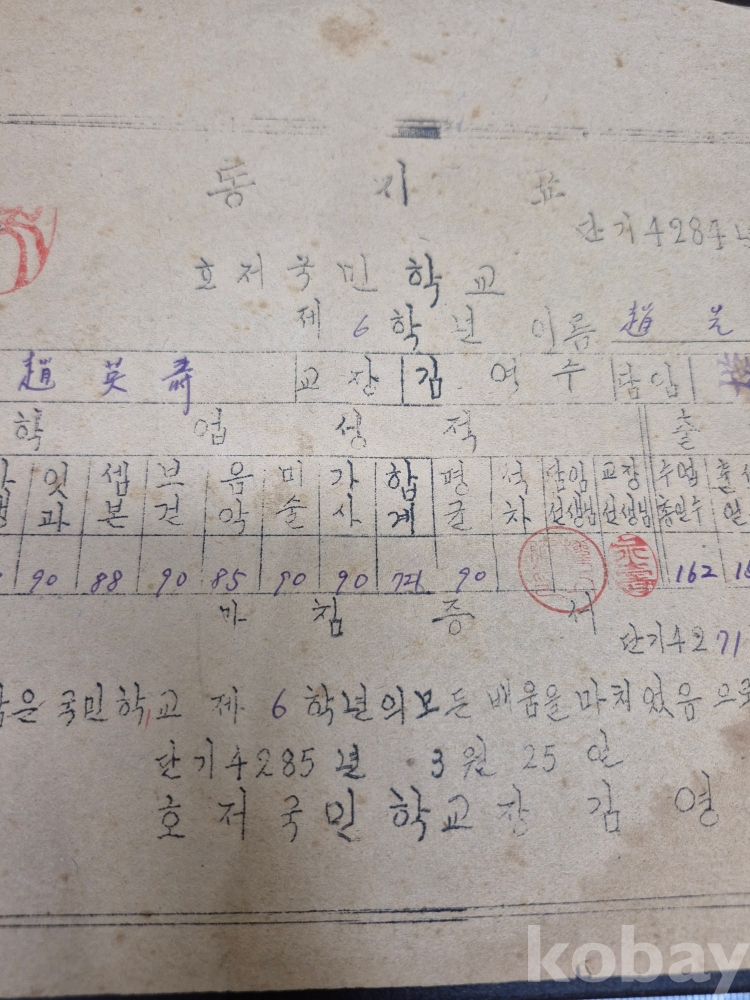 통 지 표
단기 4284년
호저국민학교
제 6 학년 이름 趙
趙英壽 교장 김영수 담임
학 업 성 적 출
잇과 셈본 보건 음악 미술 가사 합계 평균 석차 담임선생님 교장선생님 수업총일수
90 88 90 85 90 90 90 162
마 침 증 서
단기 4271
은 국민학교 제 6 학년의 모든 배움을 마치었음으로
단기 4285년 3월 25일
호저국민학교장 김 영
kobay